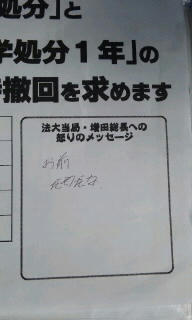 処分」と
学処分１年」の
撤回を求めます
法大当局・増田総長への
怒りのメッセージ
お前